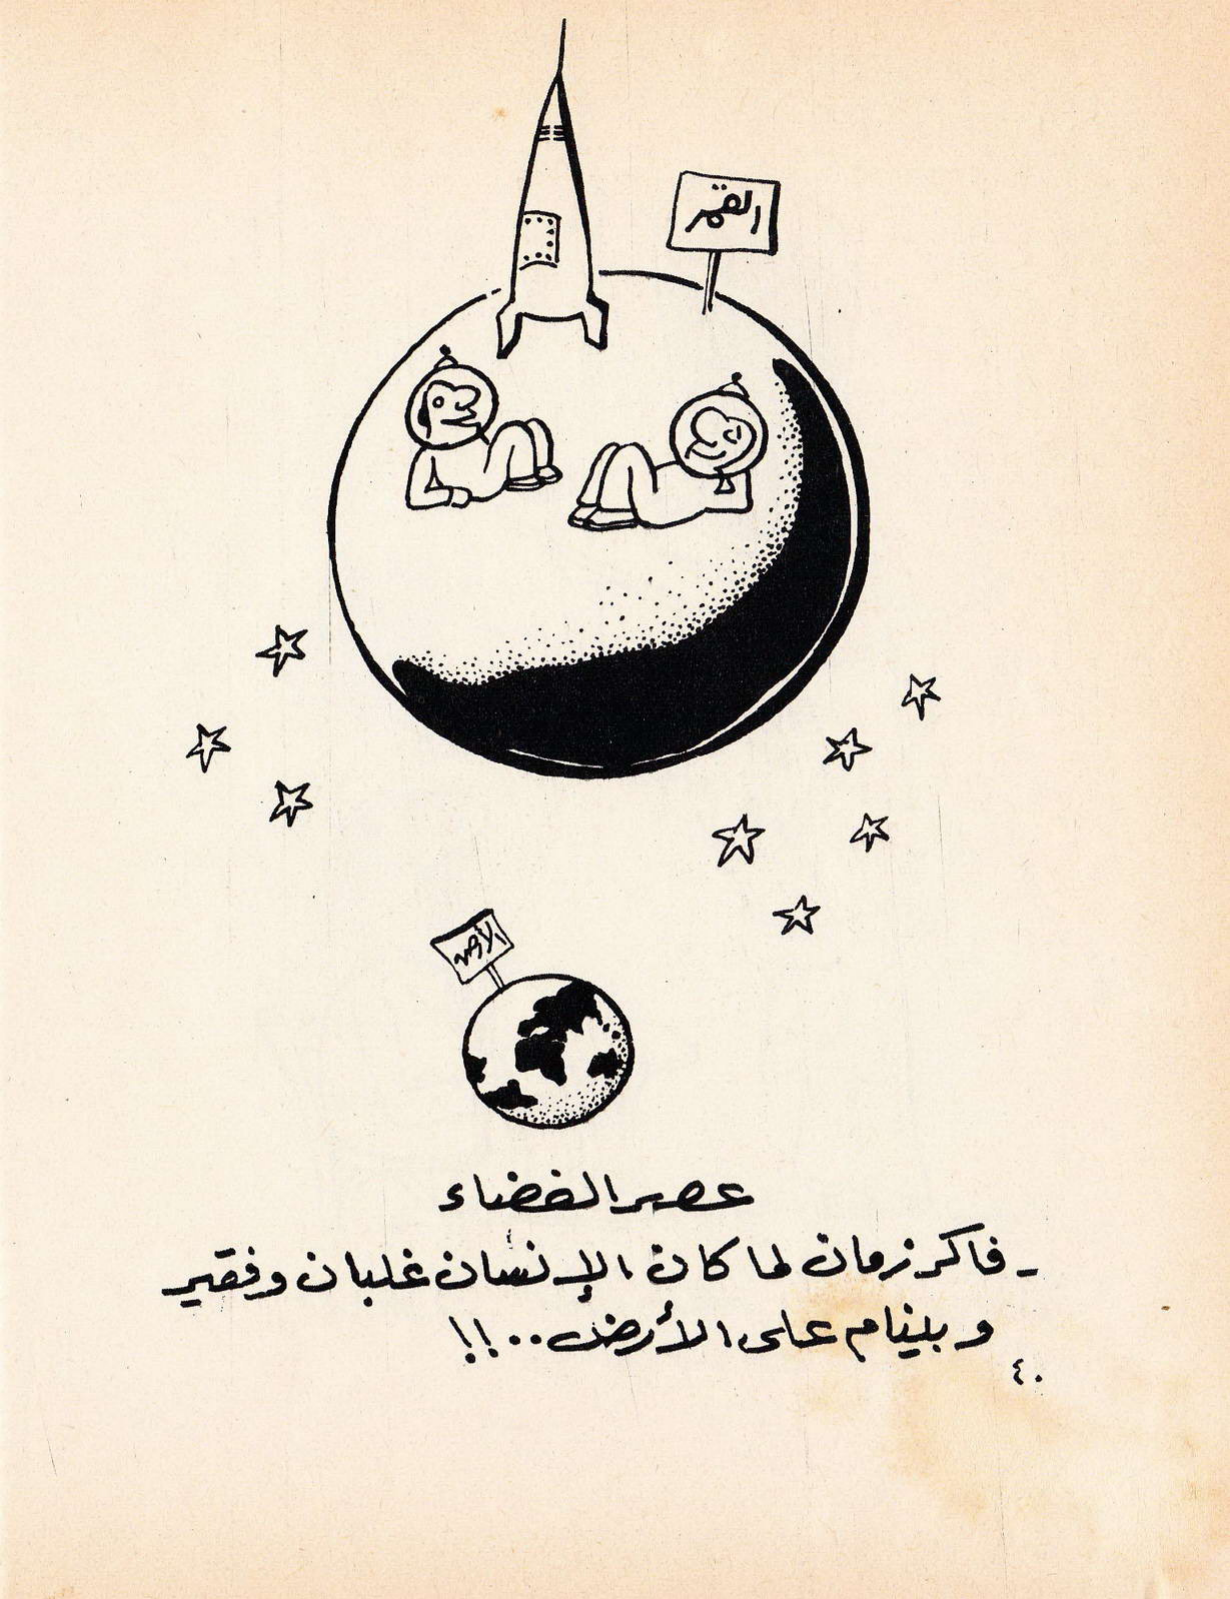 القمر
الأرض
عصر الفضاء
- فاكر زمان لما كان الإنسان غلبان وفقير
وبينام على الأرض..!!
٤٠